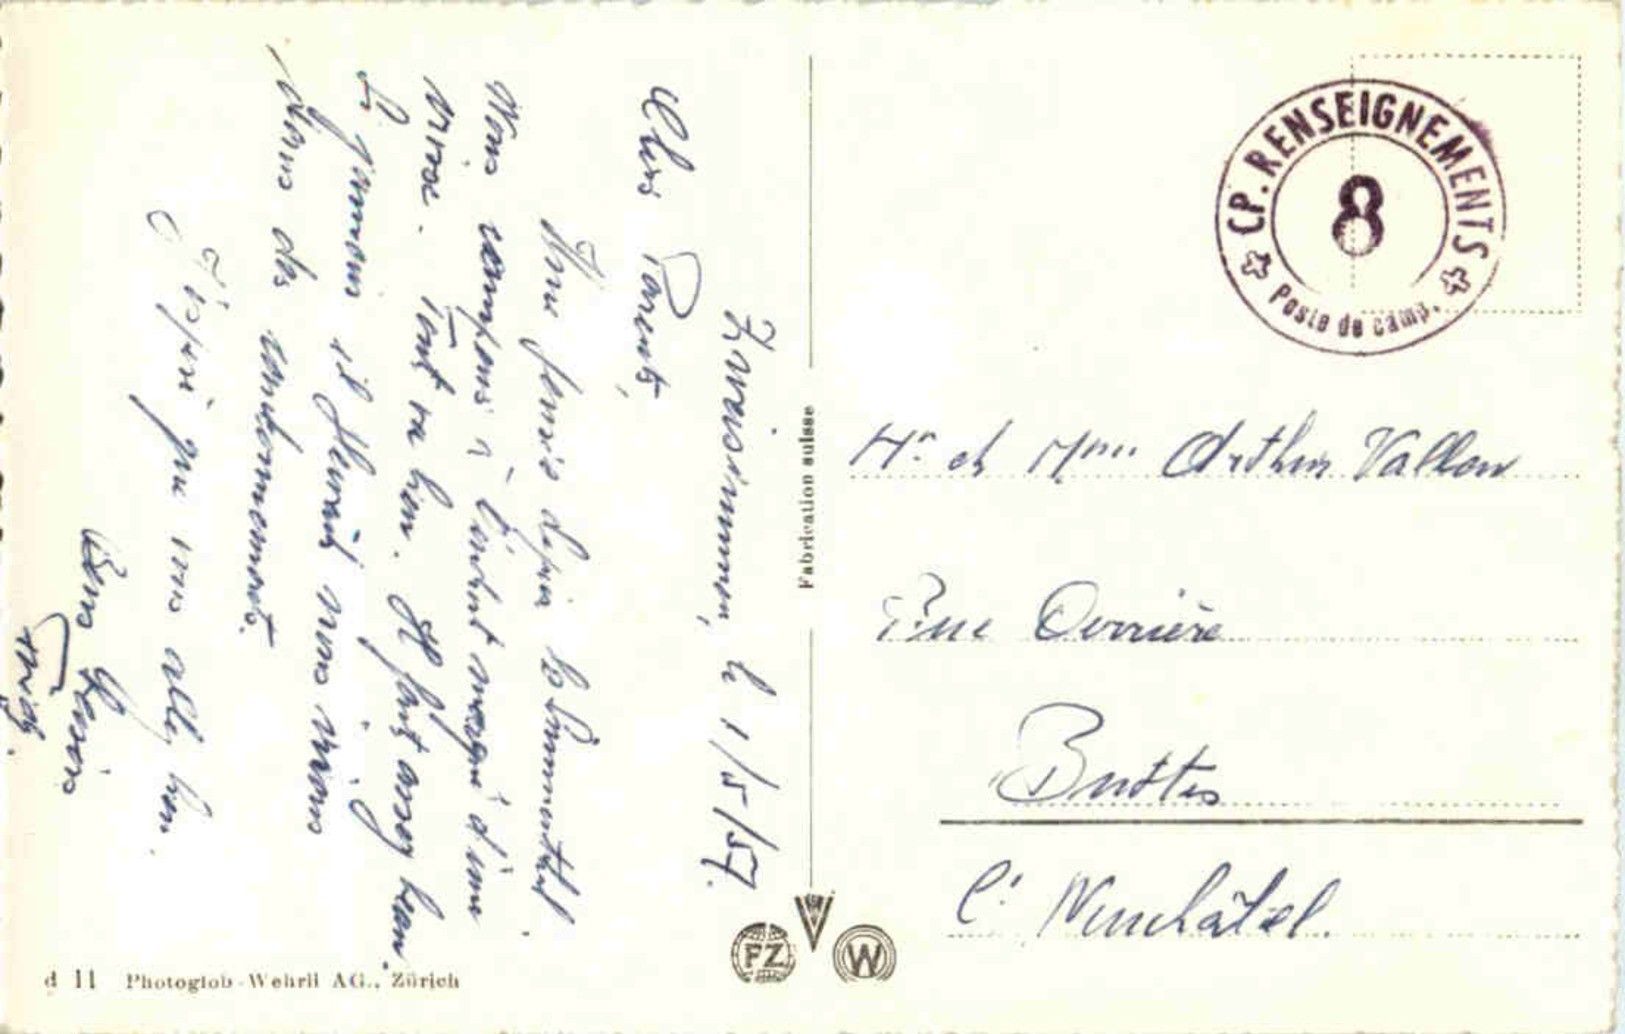 Zweisimmen, le 1/5/57.
Chers Parents,
Une fois depuis le Simmental
Nous campons à l'instant d'une
Tout va bien. Il fait assez beau.
La journée et nous vivons
dans des cantonnements.
J'espère que vous allez bien.
Bons
CP. RENSEIGNEMENTS
8
Poste de camp.
Mr et Mme Arthur Vallon
Rue Derrière
Buttes
Ct Neuchâtel.
Fabrication suisse
FZ
W
d 11 Photoglob-Wehrli AG., Zürich